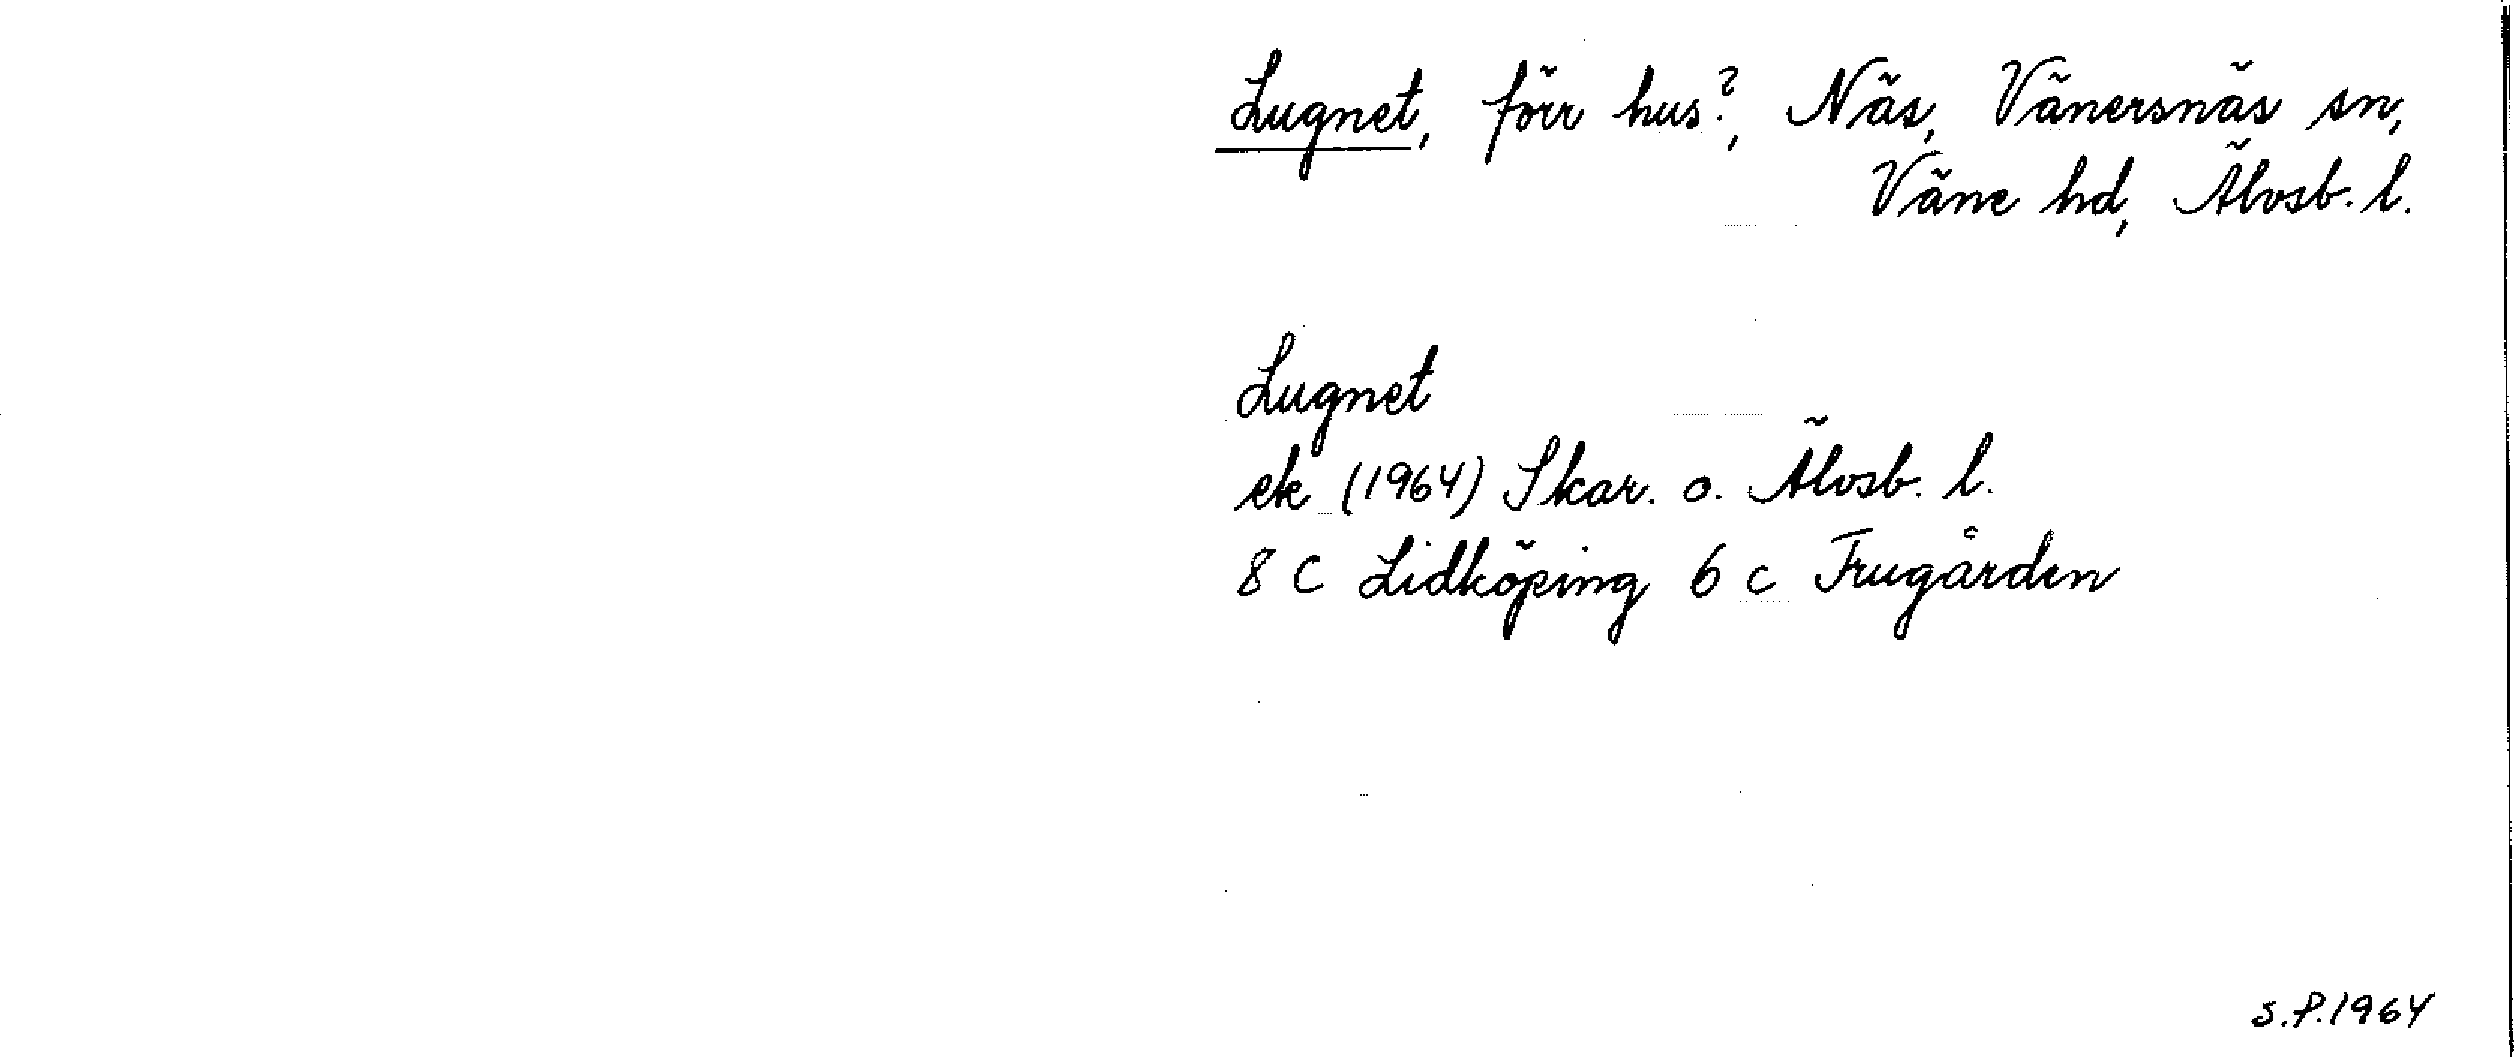 Lugnet, förr hus?, Näs, Vänersnäs sn,
Väne hd, Älvsb. l.
Lugnet
ek (1964) Skar. o. Älvsb. l.
8 C Lidköping 6 c Frugården
S.P.1964